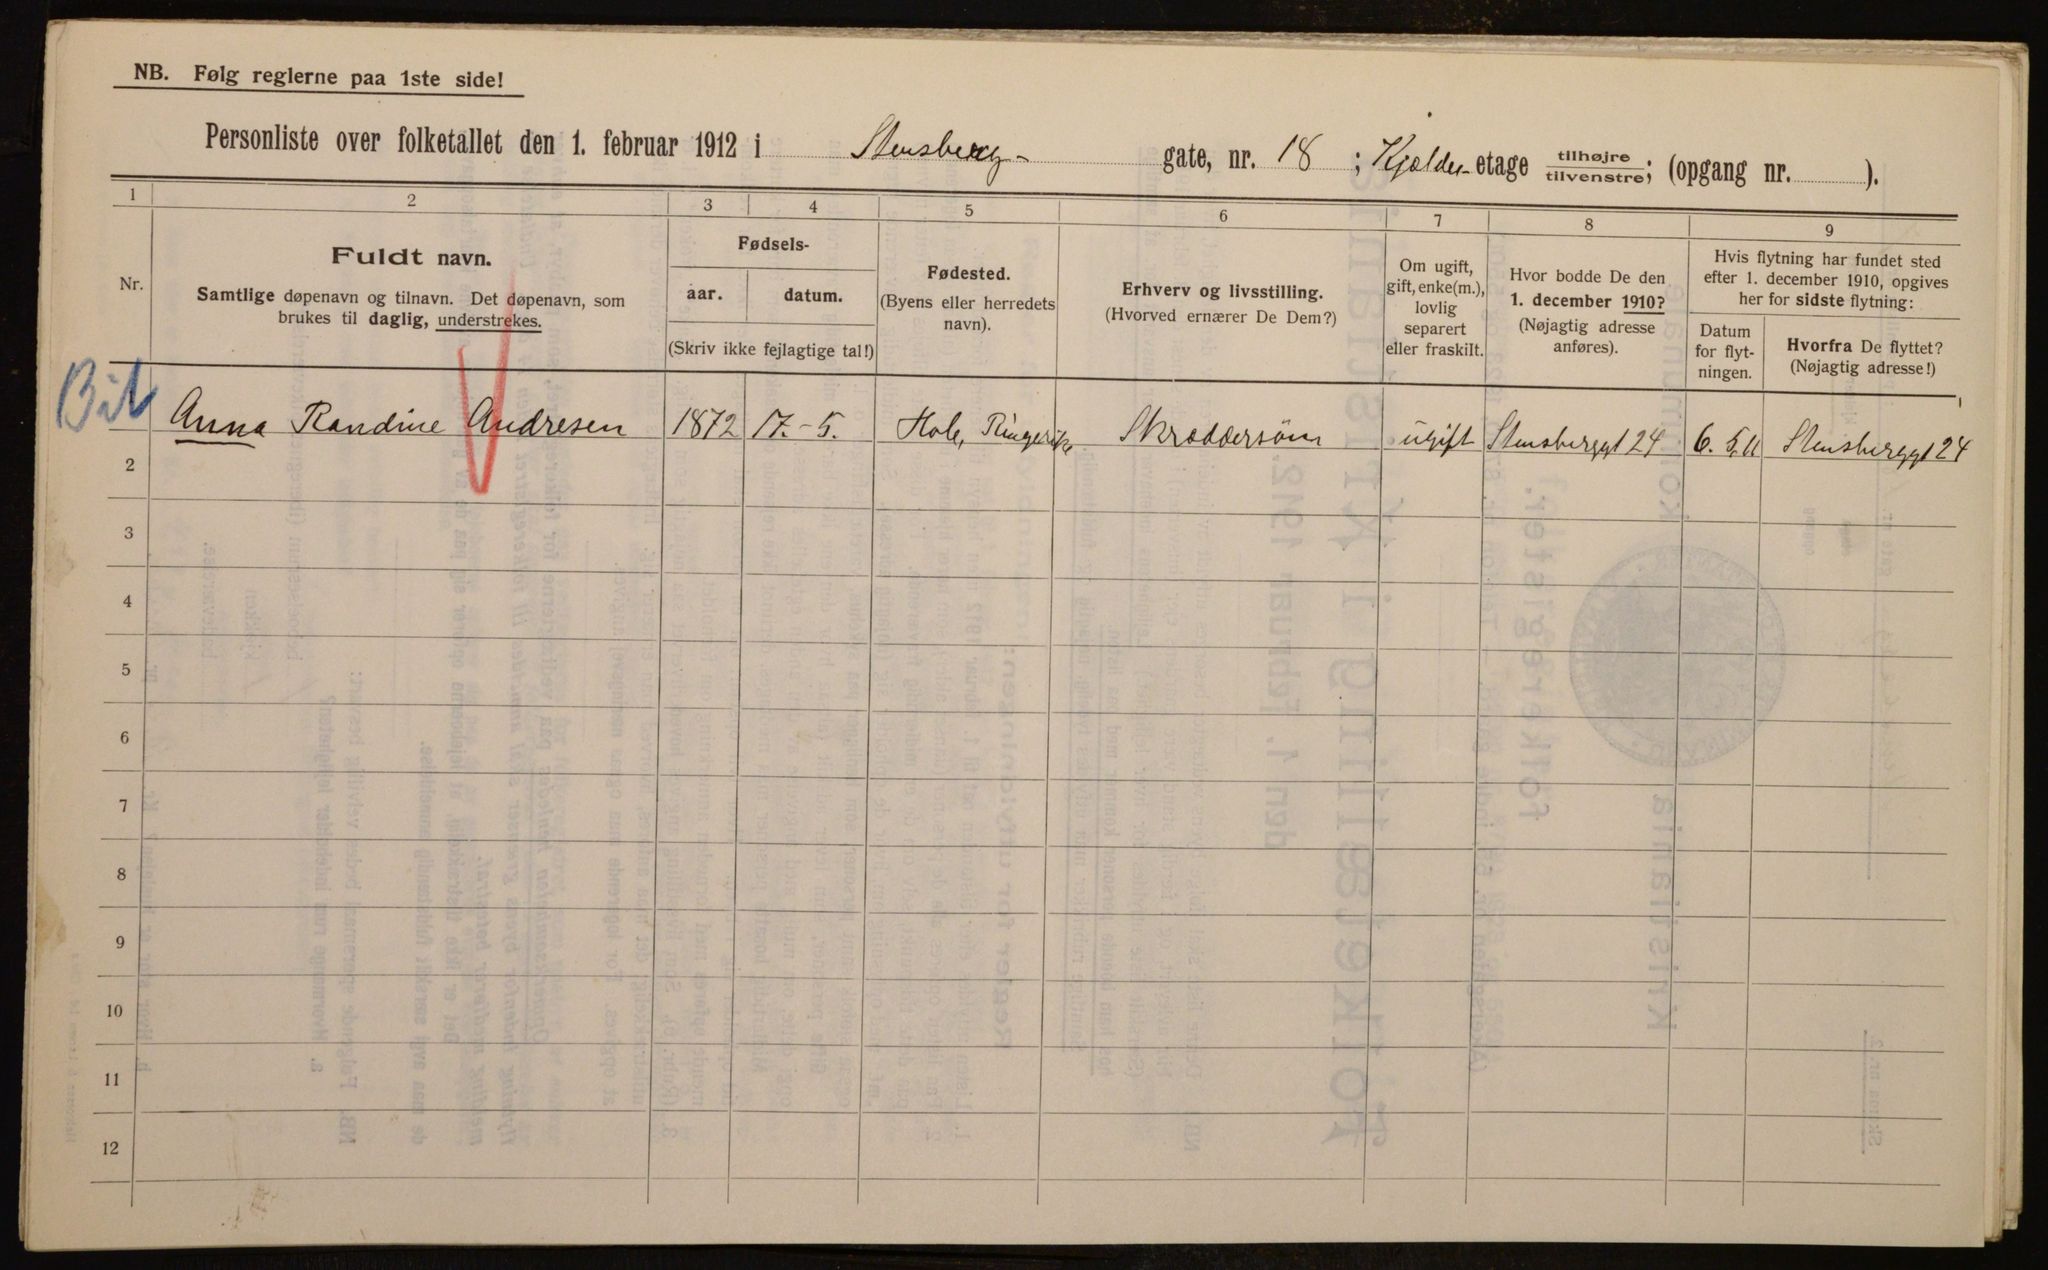 NB. Følg reglerne paa 1ste side!
Personliste over folketallet den 1. februar 1912 i Stensberg- gate, nr. 18 ; Kjælder- etage tilhøjre tilvenstre; (opgang nr. ).
1 2 3 4 5 6 7 8 9
Nr.
Fuldt navn.
Samtlige døpenavn og tilnavn. Det døpenavn, som
brukes til daglig, understrekes.
Fødsels-
aar. datum.
(Skriv ikke fejlagtige tal!)
Fødested.
(Byens eller herredets
navn).
Erhverv og livsstilling.
(Hvorved ernærer De Dem?)
Om ugift,
gift, enke(m.),
lovlig
separert
eller fraskilt.
Hvor bodde De den
1. december 1910?
(Nøjagtig adresse
anføres).
Hvis flytning har fundet sted
efter 1. december 1910, opgives
her for sidste flytning:
Datum
for flyt-
ningen.
Hvorfra De flyttet?
(Nøjagtig adresse!)
Anna Randine Andresen 1872 17.-5. Hole, Ringerike Skræddersøm ugift Stensberggt 24 6. 5. 11 Stensberggt 24
2
3
4
5
6
7
8
9
10
11
12